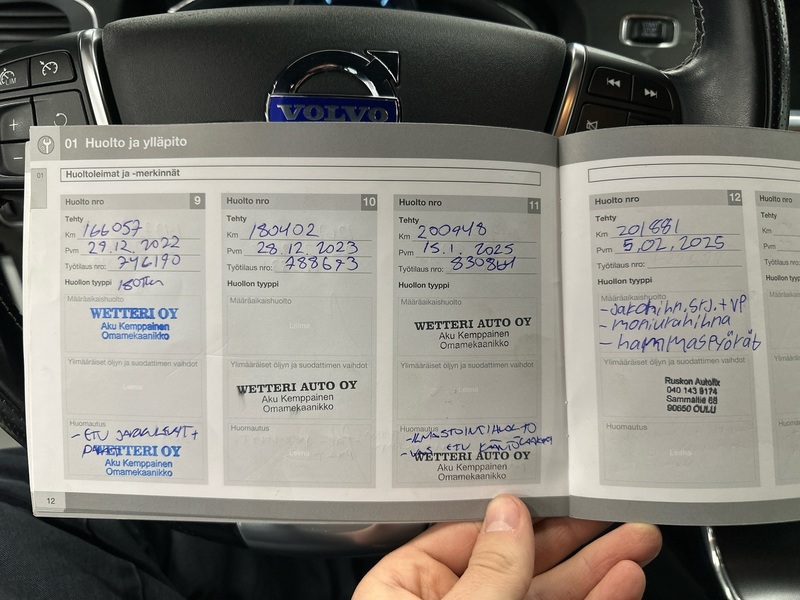 VOLVO
01 Huolto ja ylläpito
01
Huoltoleimat ja -merkinnät
Huolto nro 9
Tehty
Km 166057
Pvm 29.12.2022
Työtilaus nro: 746190
Huollon tyyppi
Määräaikaishuolto
WETTERI OY
Aku Kemppainen
Omamekaanikko
Ylimääräiset öljyn ja suodattimen vaihdot
Leima
Huomautus
- ETU JARRULEVYT +
WETTERI OY
Aku Kemppainen
Omamekaanikko
Huolto nro 10
Tehty
Km 180402
Pvm 28.12.2023
Työtilaus nro: 788673
Huollon tyyppi
Määräaikaishuolto
Leima
Ylimääräiset öljyn ja suodattimen vaihdot
WETTERI AUTO OY
Aku Kemppainen
Omamekaanikko
Huomautus
Leima
Huolto nro 11
Tehty
Km 200948
Pvm 15.1.2025
Työtilaus nro:
Huollon tyyppi
Määräaikaishuolto
WETTERI AUTO OY
Aku Kemppainen
Omamekaanikko
Ylimääräiset öljyn ja suodattimen vaihdot
Leima
Huomautus
- ILMASTOINTIHUOLTO
- VAS. ETU
WETTERI AUTO OY
Aku Kemppainen
Omamekaanikko
12
Huolto nro 12
Tehty
Km 201881
Pvm 5.02.2025
Työtilaus nro:
Huollon tyyppi
Määräaikaishuolto
- Jakohihn. Srj. + VP
- moniurahihna
- hammaspyörät
Ylimääräiset öljyn ja suodattimen vaihdot
Ruskon Autofix
040 143 9174
Sammaltie 68
90650 OULU
Huomautus
Leima
Huolto nro
Tehty
Km
Pvm